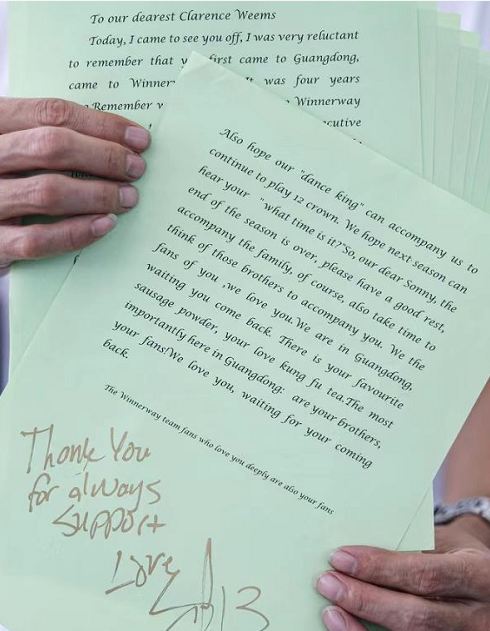 To our dearest Clarence Weems
Today, I came to see you off, I was very reluctant
to remember that first came to Guangdong,
came to Winner was four years
Remember Winnerway
Also hope our "dance king" can accompany us to
continue to play 12 crown. We hope next season can
hear your "what time is it?"So, our dear Sonny, the
end of the season is over, please have a good rest,
accompany the family, of course, also take time to
think of those brothers to accompany you. We the
fans of you .we love you.We are in Guangdong,
waiting you come back. There is your favourite
sausage powder, your love kung fu tea.The most
importantly here in Guangdong: are your brothers,
your fans!We love you, waiting for your coming
back.
The Winnerway team fans who love you deeply are also your fans
Thank You
for always
support
Love
13